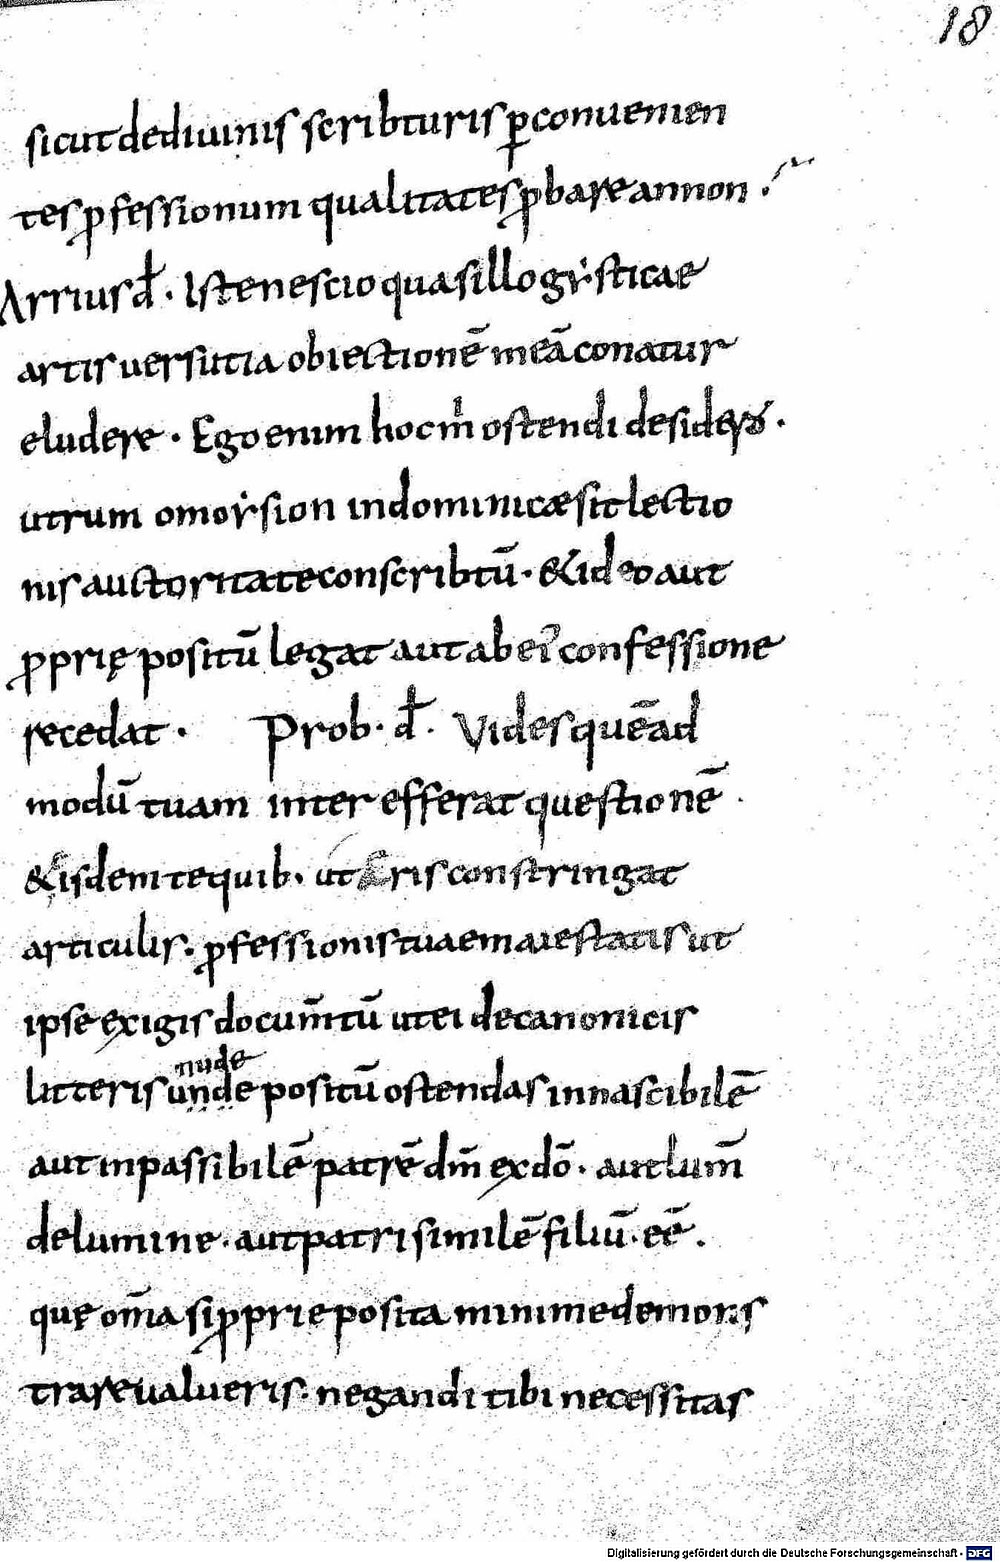 18
sicut de diuinis scribturis ꝑ conuenien
tes ꝓfessionum qualitates ꝓbare annon .
Arrius đ . Iste nescio qua sillogẏsticae
artis uersutia obiectionē meā conatur
eludere . Ego enim hoc m̄ ostendi desidero .
utrum omoẏsion in dominicæ sit lectio
nis auctoritate conscribtū . & ideo aut
ꝓprię positū legat aut ab ei' confessione
recedat . Prob . đ . Vides quēad
modū tuam inter efferat questionē .
& isdem te quib . ut eris constringat
articulis . ꝓfessionis tuae maiestatis ut
ipse exigis docum̄tū ut ei de canonicis
litteris unde positū ostendas innascibilē
nude
aut inpassibilē patrē dm̄ ex dō . aut lum̄
de lumine . aut patri similē filiū . eē .
quę om̄a si ꝓprie posita minime demons
trare ualueris . negandi tibi necessitas
Digitalisierung gefördert durch die Deutsche Forschungsgemeinschaft - DFG